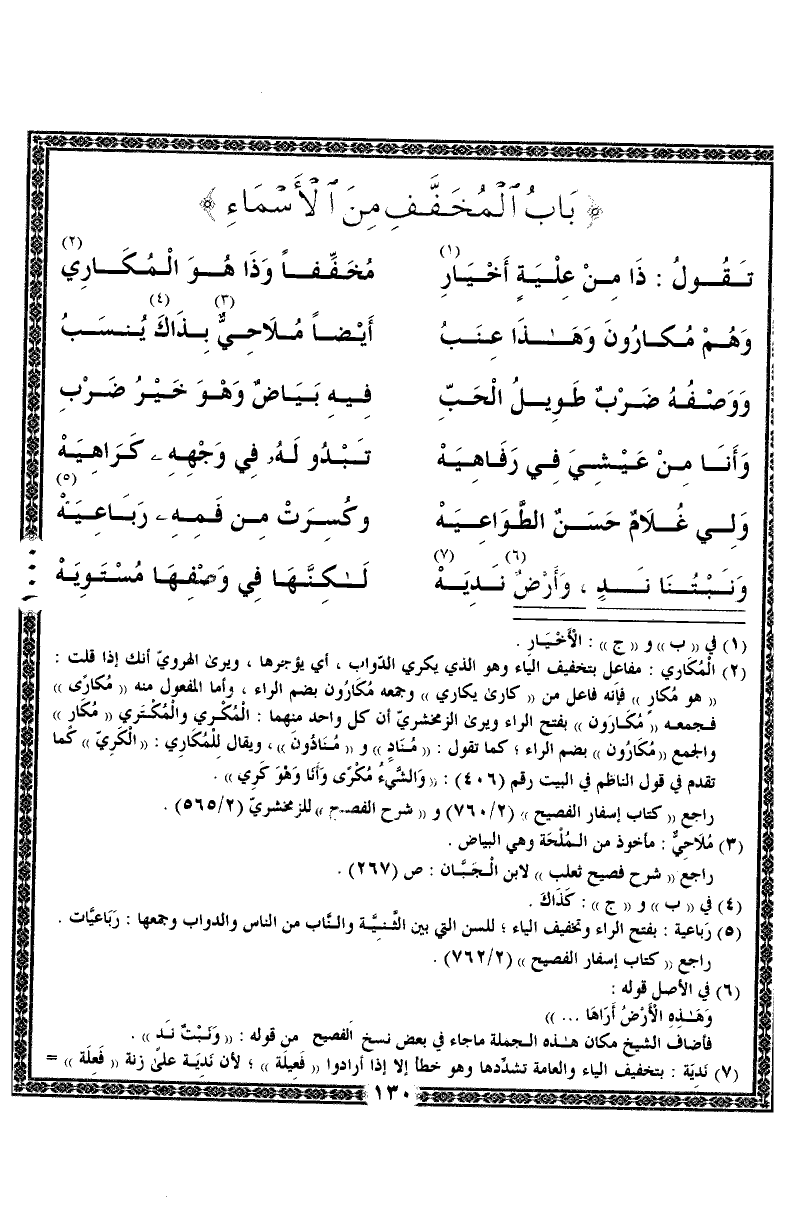 ﴿ بَابُ الْمُخَفَّفِ مِنَ الْأَسْمَاءِ ﴾
تَقُولُ : ذَا مِنْ عِلْيَةٍ أَخْيَارِ (١) مُخَفِّفاً وَذَا هُوَ الْمُكَارِي (٢)
وَهُمْ مُكَارُونَ وَهَـٰذَا عِنَبُ أَيْضاً مُلَاحِيٌّ (٣) بِذَاكَ (٤) يُنْسَبُ
وَوَصْفُهُ ضَرْبٌ طَوِيلُ الْحَبِّ فِيهِ بَيَاضٌ وَهْوَ خَيْرُ ضَرْبِ
وَأَنَا مِنْ عَيْشِيَ فِي رَفَاهِيَهْ تَبْدُو لَهُ فِي وَجْهِهِ كَرَاهِيَهْ
وَلِي غُلَامٌ حَسَنُ الطَّوَاعِيَهْ وكُسِرَتْ مِن فَمِهِ رَبَاعِيَهْ (٥)
وَنَبْتُنَا نَدٍ ، وَأَرْضٌ (٦) نَدِيَهْ (٧) لَـٰكِنَّهَا فِي وَصْفِهَا مُسْتَوِيَهْ
(١) في « ب » و « ج » : الْأَخْيَارِ .
(٢) الْمُكَاري : مفاعل بتخفيف الياء وهو الذي يكري الدّواب ، أي يؤجرها ، ويرىٰ الهرويّ أنك إذا قلت :
« هو مُكارٍ » فإنه فاعل من « كارىٰ يكاري » وجمعه مُكَارُون بضم الراء ، وأما المفعول منه « مُكارًى »
فجمعه « مُكَارَون » بفتح الراء ويرىٰ الزمخشريّ أن كل واحد منهما : الْمُكْرِي والْمُكْتَرِي « مُكَارٍ »
والجمع « مُكارُون » بضم الراء ؛ كما تقول : « مُنَادٍ » و « مُنَادُون » ، ويقال لِلْمُكاري : « الْكَرِيّ » كما
تقدم في قول الناظم في البيت رقم (٤٠٦) : « وَالشَّيْءُ مُكْرًى وَأَنَا وَهْوَ كَرِي » .
راجع « كتاب إسفار الفصيح » (٧٦٠/٢) و « شرح الفصيح » للزمخشريّ (٥٦٥/٢) .
(٣) مُلَاحِيٌّ : مأخوذ من الـمُلْحَة وهي البياض .
راجع « شرح فصيح ثعلب » لابن الْجَبَّان : ص (٢٦٧) .
(٤) في « ب » و « ج » : كَذَاكَ .
(٥) رَباعية : بفتح الراء وتخفيف الياء ؛ للسن التي بين الثَّنِيَّة والنَّاب من الناس والدواب وجمعها : رَبَاعِيَّات .
راجع « كتاب إسفار الفصيح » (٧٦٢/٢) .
(٦) في الأصل قوله :
وَهَـٰذِهِ الْأَرْضُ أَرَاهَا ... »
فأضاف الشيخ مكان هـٰذه الـجملة ماجاء في بعض نسخ الفصيح من قوله : « وَنَبْتٌ نَدٍ » .
(٧) نَدِيَة : بتخفيف الياء والعامة تشدِّدها وهو خطأ إلا إذا أرادوا « فَعِيلَة » ؛ لأن نَدِيَة علىٰ زنة « فَعِلَة » =
١٣٠